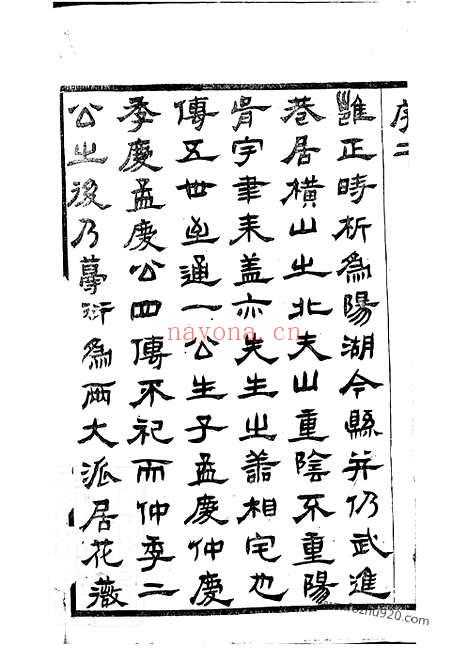 序二
雝正時析爲陽湖今縣并仍武進
巷居橫山之北夫山重陰不重陽
胥宇聿來蓋亦先生之善相宅也
傳五世至通一公生子孟慶仲慶
季慶孟慶公四傳不祀而仲季二
公之後乃蕃衍爲兩大派居花薇
nayona.cn
fozhu920.com